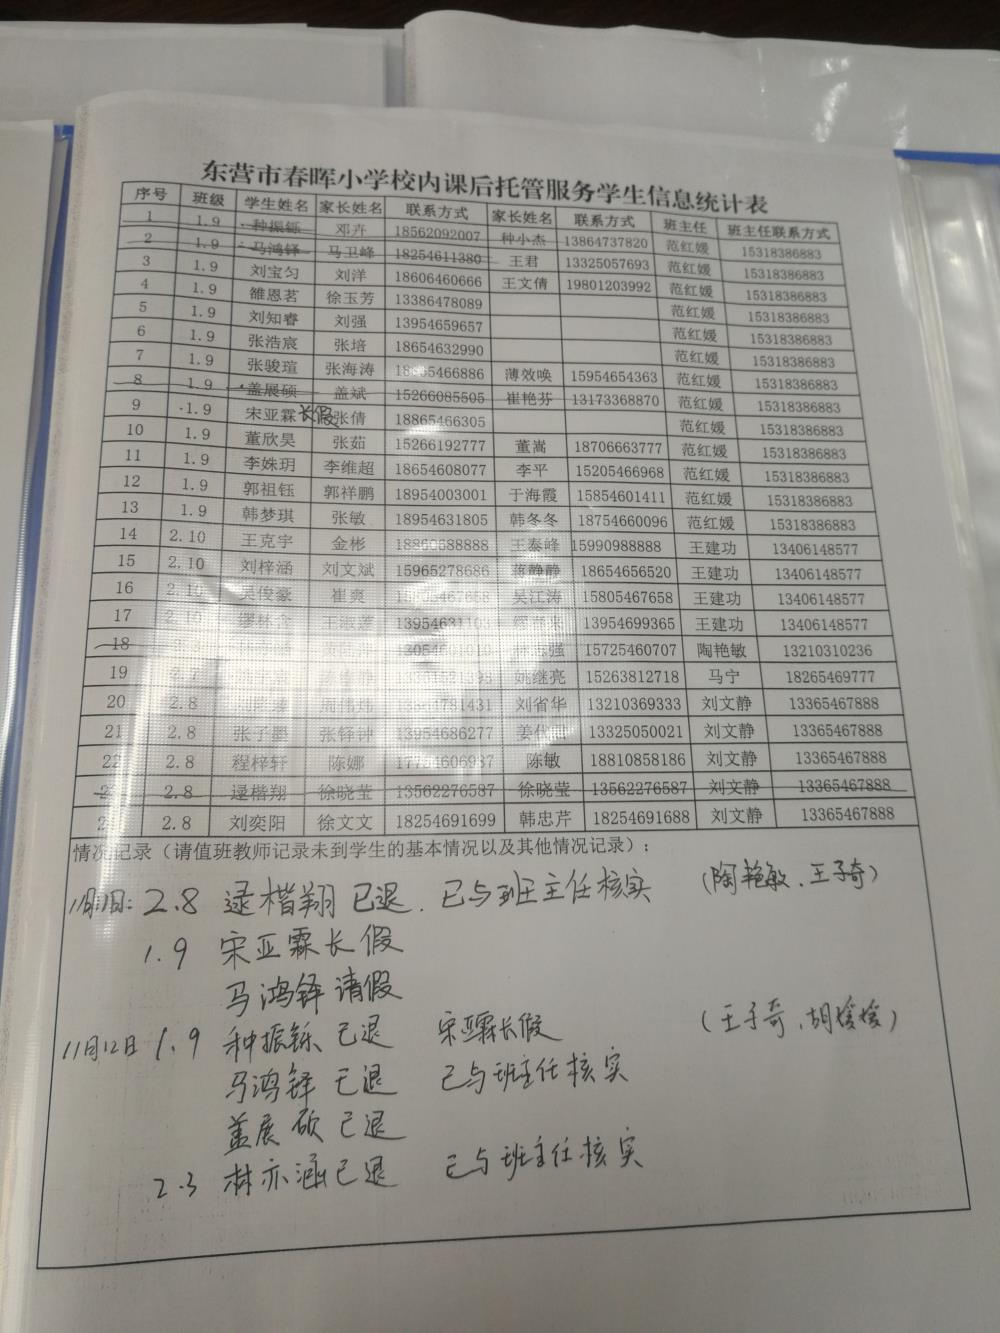 东营市春晖小学校内课后托管服务学生信息统计表
序号 班级 学生姓名 家长姓名 联系方式 家长姓名 联系方式 班主任 班主任联系方式
1 1.9 种振铄 邓卉 18562092007 种小杰 13864737820 范红媛 15318386883
2 1.9 马鸿铎 马卫峰 18254611380 王君 13325057693 范红媛 15318386883
3 1.9 刘宝匀 刘洋 18606460666 王文倩 19801203992 范红媛 15318386883
4 1.9 雒恩茗 徐玉芳 13386478089 范红媛 15318386883
5 1.9 刘知睿 刘强 13954659657 范红媛 15318386883
6 1.9 张浩宸 张培 18654632990 范红媛 15318386883
7 1.9 张骏瑄 张海涛 薄效唤 15954654363 范红媛 15318386883
8 1.9 盖展硕 盖斌 15266085505 崔艳芬 13173368870 范红媛 15318386883
9 1.9 宋亚霖 长假 张倩 18865466305 范红媛 15318386883
10 1.9 董欣昊 张茹 15266192777 董嵩 18706663777 范红媛 15318386883
11 1.9 李姝玥 李维超 18654608077 李平 15205466968 范红媛 15318386883
12 1.9 郭祖钰 郭祥鹏 18954003001 于海霞 15854601411 范红媛 15318386883
13 1.9 韩梦琪 张敏 18954631805 韩冬冬 18754660096 范红媛 15318386883
14 2.10 王克宇 金彬 18860688888 王泰峰 15990988888 王建功 13406148577
15 2.10 刘梓涵 刘文斌 15965278686 蒋静静 18654656520 王建功 13406148577
16 2.10 吴俊豪 崔爽 吴江涛 15805467658 王建功 13406148577
17 2.10 13954631103 13954699365 王建功 13406148577
18 15725460707 陶艳敏 13210310236
19 2.7 姚继亮 15263812718 马宁 18265469777
20 2.8 周伟炜 刘省华 13210369333 刘文静 13365467888
21 2.8 张子墨 张铎钟 13954686277 13325050021 刘文静 13365467888
22 2.8 程梓轩 陈娜 陈敏 18810858186 刘文静 13365467888
23 2.8 逯楷翔 徐晓莹 13562276587 徐晓莹 13562276587 刘文静 13365467888
2.8 刘奕阳 徐文文 18254691699 韩忠芹 18254691688 刘文静 13365467888
情况记录（请值班教师记录未到学生的基本情况以及其他情况记录）：
2.8 逯楷翔 已退. 已与班主任核实 (陶艳敏、王子奇)
1.9 宋亚霖长假
马鸿铎请假
11月12日 1.9 种振铄 已退 宋亚霖长假 (王子奇、胡媛媛)
马鸿铎 已退 已与班主任核实
盖展硕 已退
2.3 林亦涵已退 已与班主任核实